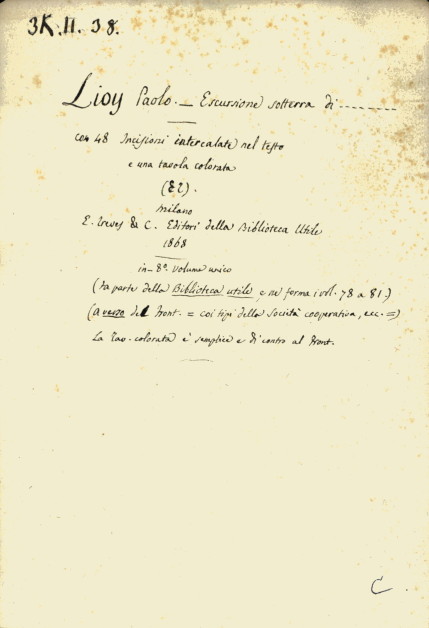 3K.II.38.
Lioy Paolo. — Escursione sotterra di --------
con 48 Incisioni intercalate nel testo
e una tavola colorata
Milano
E. Treves & C. Editori della Biblioteca Utile
1868
in-8º. volume unico
(fa parte della Biblioteca utile, e ne forma i vol. 78 a 81.)
(a verso del front. = coi tipi della Società cooperativa, ecc. =)
La Tav. colorata è semplice e di contro al front.
C